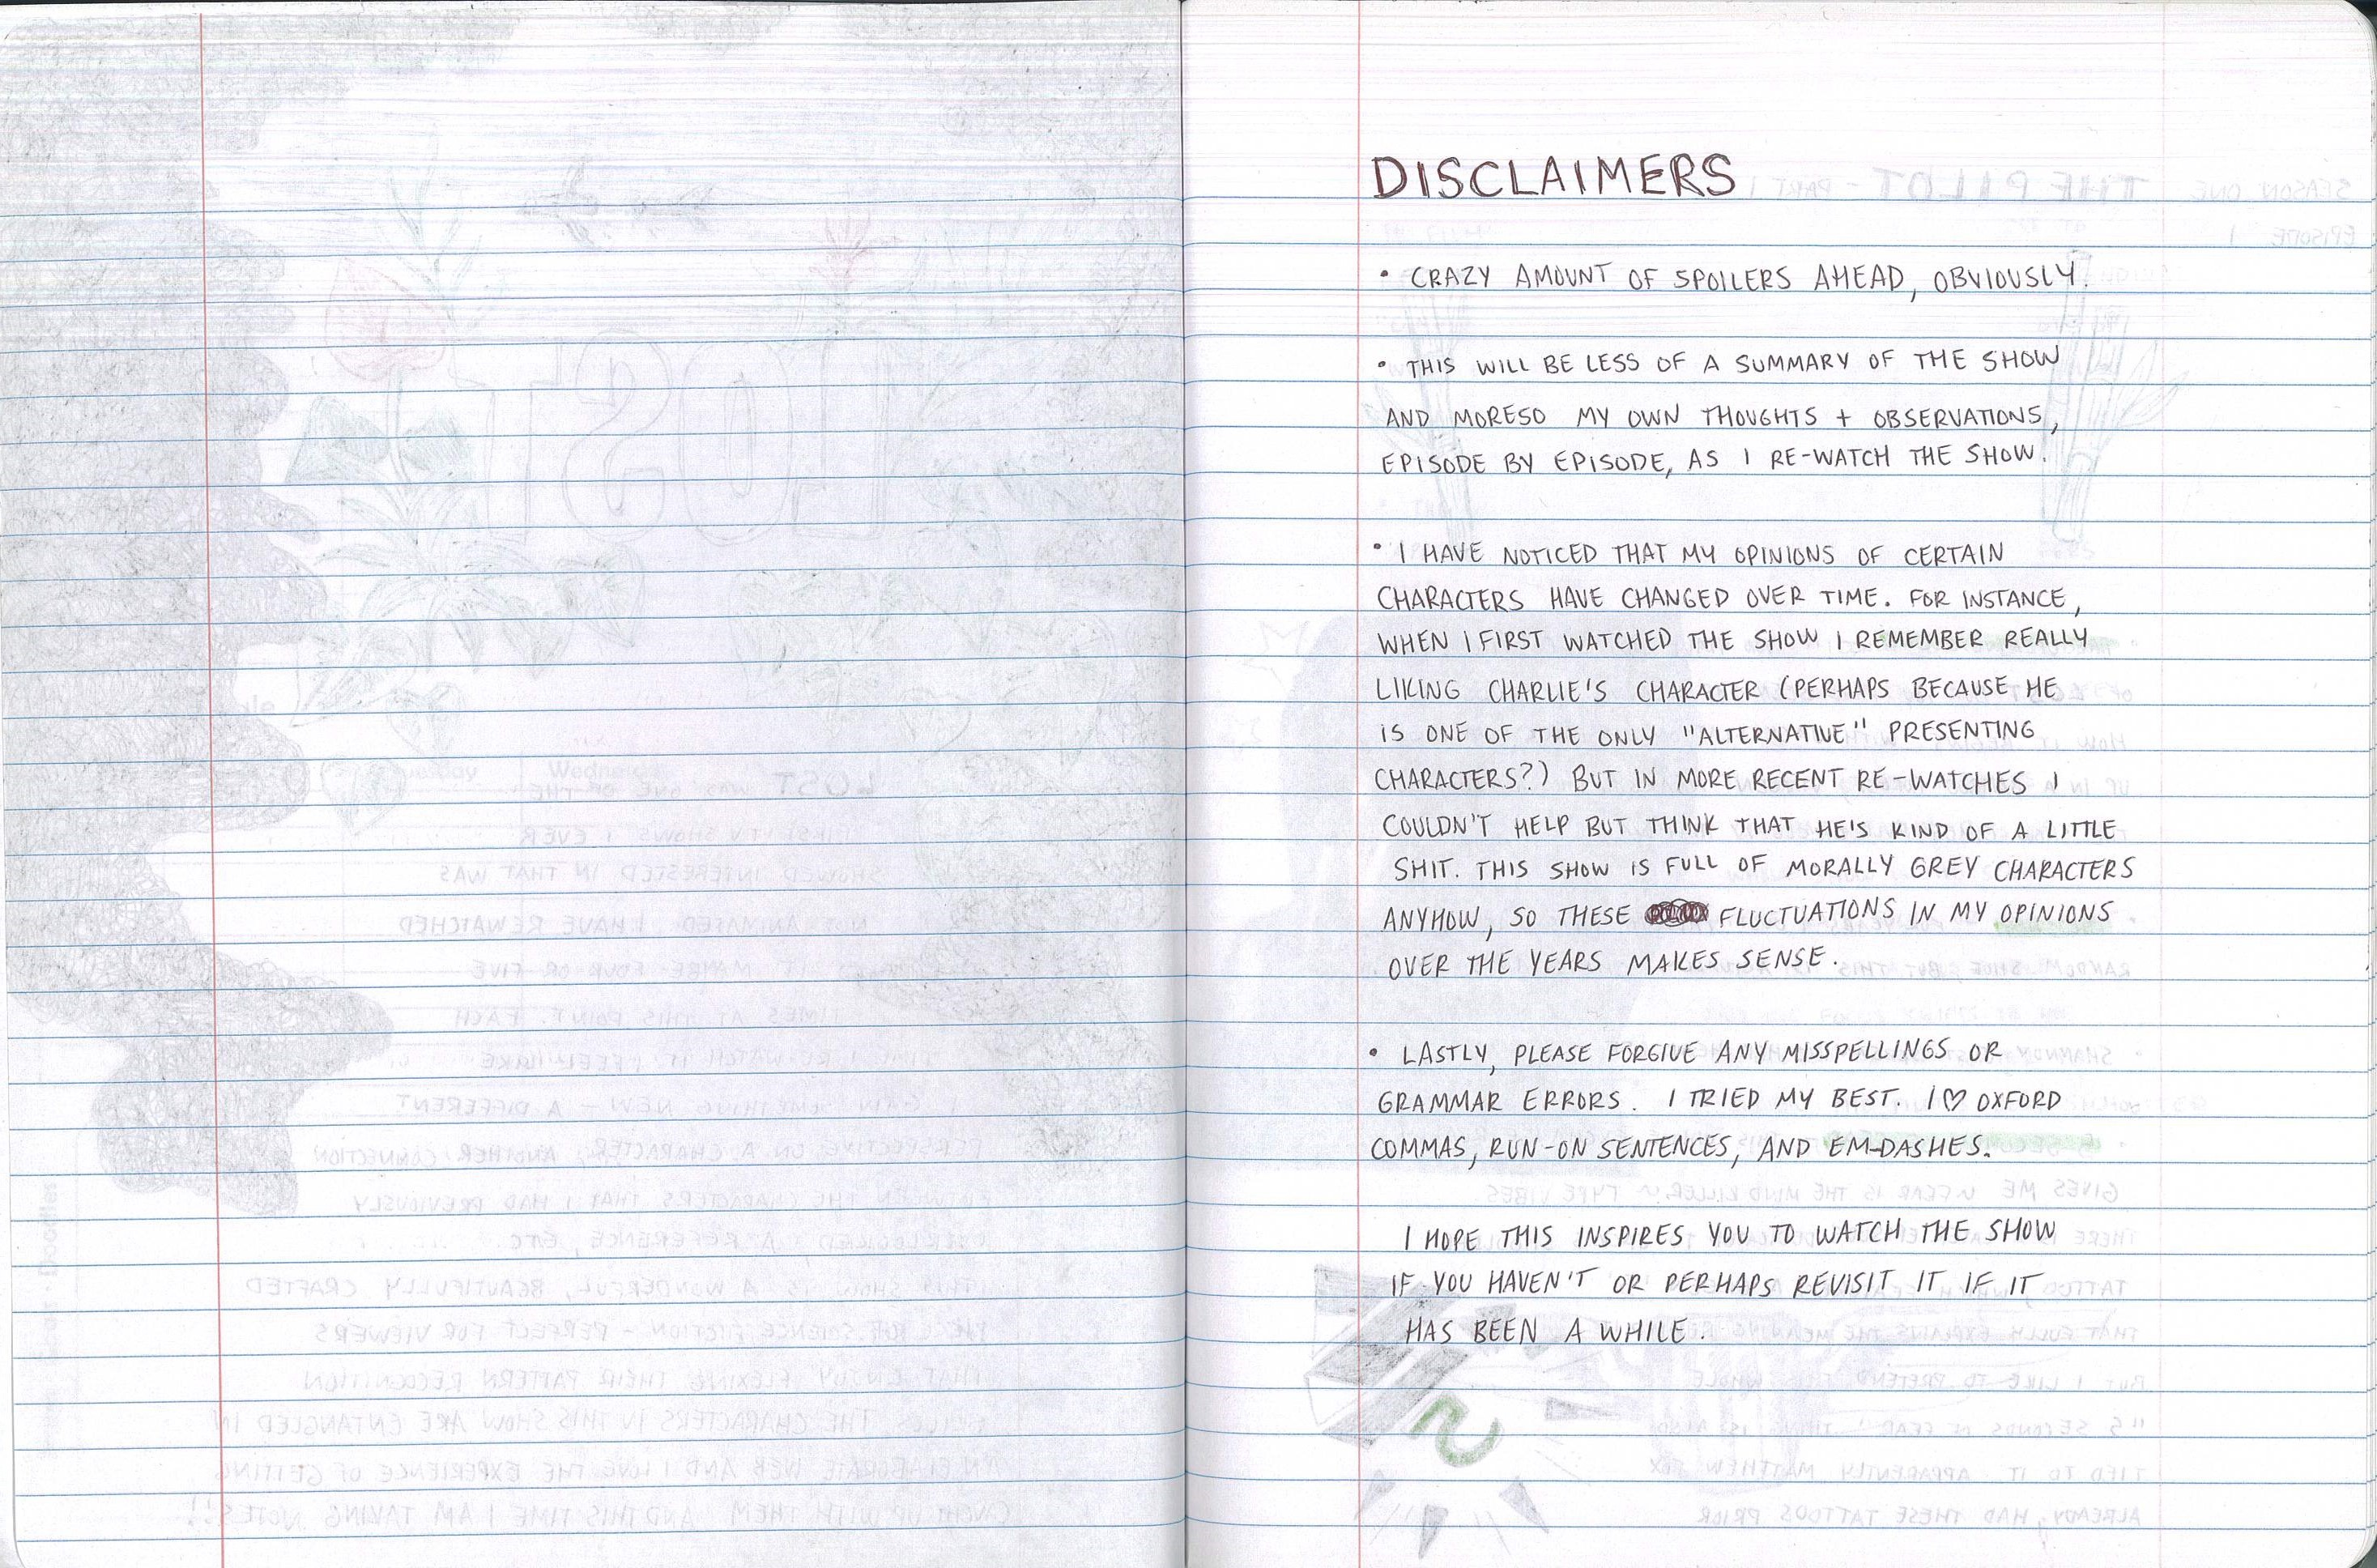 DISCLAIMERS
• CRAZY AMOUNT OF SPOILERS AHEAD, OBVIOUSLY.
• THIS WILL BE LESS OF A SUMMARY OF THE SHOW
AND MORESO MY OWN THOUGHTS + OBSERVATIONS,
EPISODE BY EPISODE, AS I RE-WATCH THE SHOW.
• I HAVE NOTICED THAT MY OPINIONS OF CERTAIN
CHARACTERS HAVE CHANGED OVER TIME. FOR INSTANCE,
WHEN I FIRST WATCHED THE SHOW I REMEMBER REALLY
LIKING CHARLIE'S CHARACTER (PERHAPS BECAUSE HE
IS ONE OF THE ONLY "ALTERNATIVE" PRESENTING
CHARACTERS?) BUT IN MORE RECENT RE-WATCHES I
COULDN'T HELP BUT THINK THAT HE'S KIND OF A LITTLE
SHIT. THIS SHOW IS FULL OF MORALLY GREY CHARACTERS
ANYHOW, SO THESE FLUCTUATIONS IN MY OPINIONS
OVER THE YEARS MAKES SENSE.
• LASTLY, PLEASE FORGIVE ANY MISSPELLINGS OR
GRAMMAR ERRORS. I TRIED MY BEST. I ♡ OXFORD
COMMAS, RUN-ON SENTENCES, AND EM-DASHES.
I HOPE THIS INSPIRES YOU TO WATCH THE SHOW
IF YOU HAVEN'T OR PERHAPS REVISIT IT IF IT
HAS BEEN A WHILE.